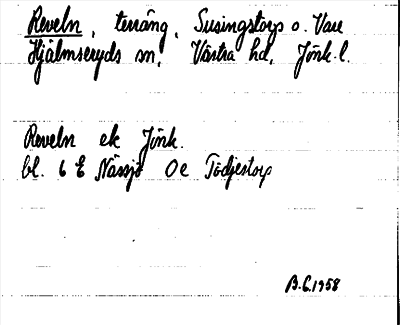 Reveln, terräng, Susingstorp o. Vare
Hjälmseryds sn, Västra hd, Jönk. l.
Reveln ek Jönk.
bl. 6 E Nässjö 0e Tödjestorp
B.G. 1958